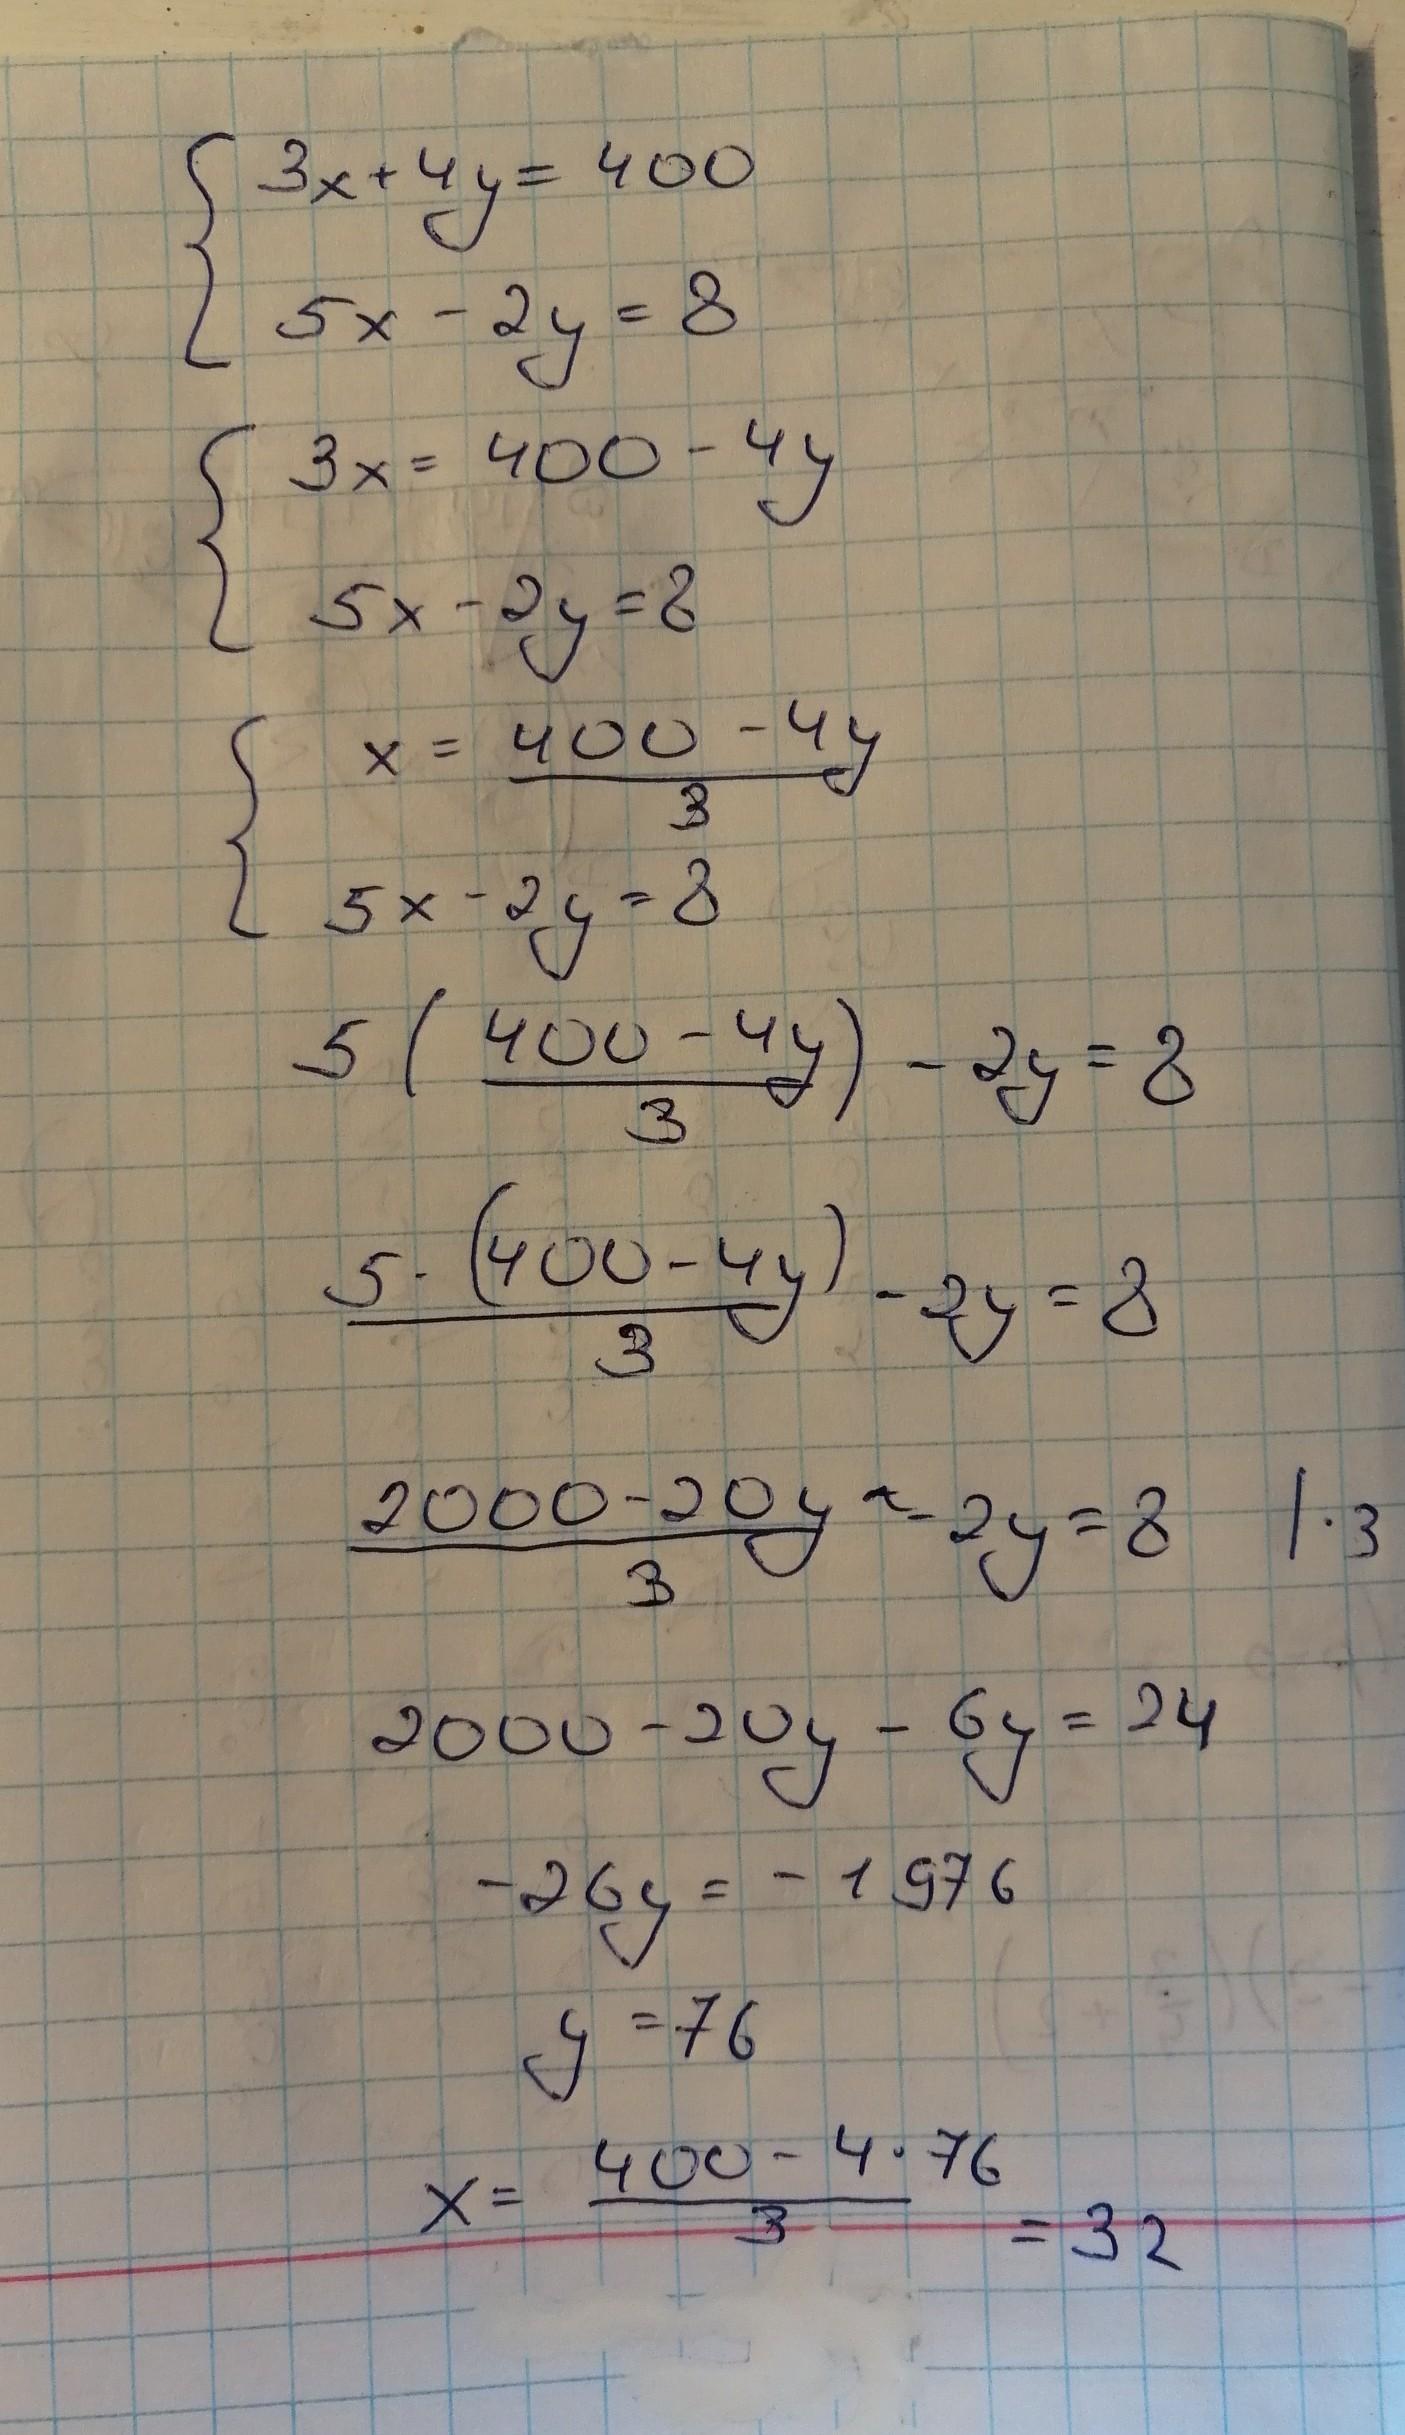 3x+4y=400
5x-2y=8
3x=400-4y
5x-2y=8
x=400-4y
3
5x-2y=8
5(400-4y)-2y=8
3
5·(400-4y)-2y=8
3
2000-20y-2y=8 |·3
3
2000-20y-6y=24
-26y=-1976
y=76
x=400-4·76
3 =32